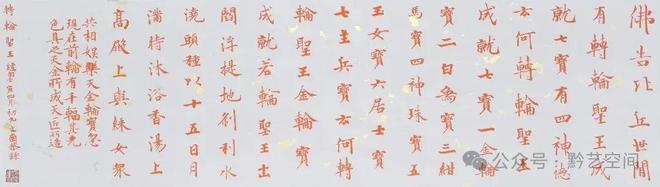 佛告比丘世間
有轉輪聖王成
就七寶有四神德
云何轉輪聖王
成就七寶一金輪
寶二白象寶三紺
馬寶四神珠寶五
玉女寶六居士
七主兵寶云何轉
輪聖王金輪寶
成就若輪聖王出
閻浮提地剎利水
澆頭種以十五日月
滿時沐浴香湯上
高殿上與婇女眾
共相娛樂天金輪寶忽
現在前輪有千輻其光
色具足天金所成天匠所造
轉輪聖王經寅四月初
公众号·黔艺空间